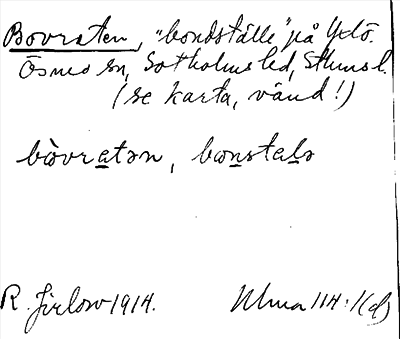 Bovraten, "bondställe" på Yxlö.
Ösmo sn, Sotholms hd, Sthms l.
(se karta, vänd!)
bòvratən, bonstalə
R. Jirlow 1914. Ulma 114:1(d)